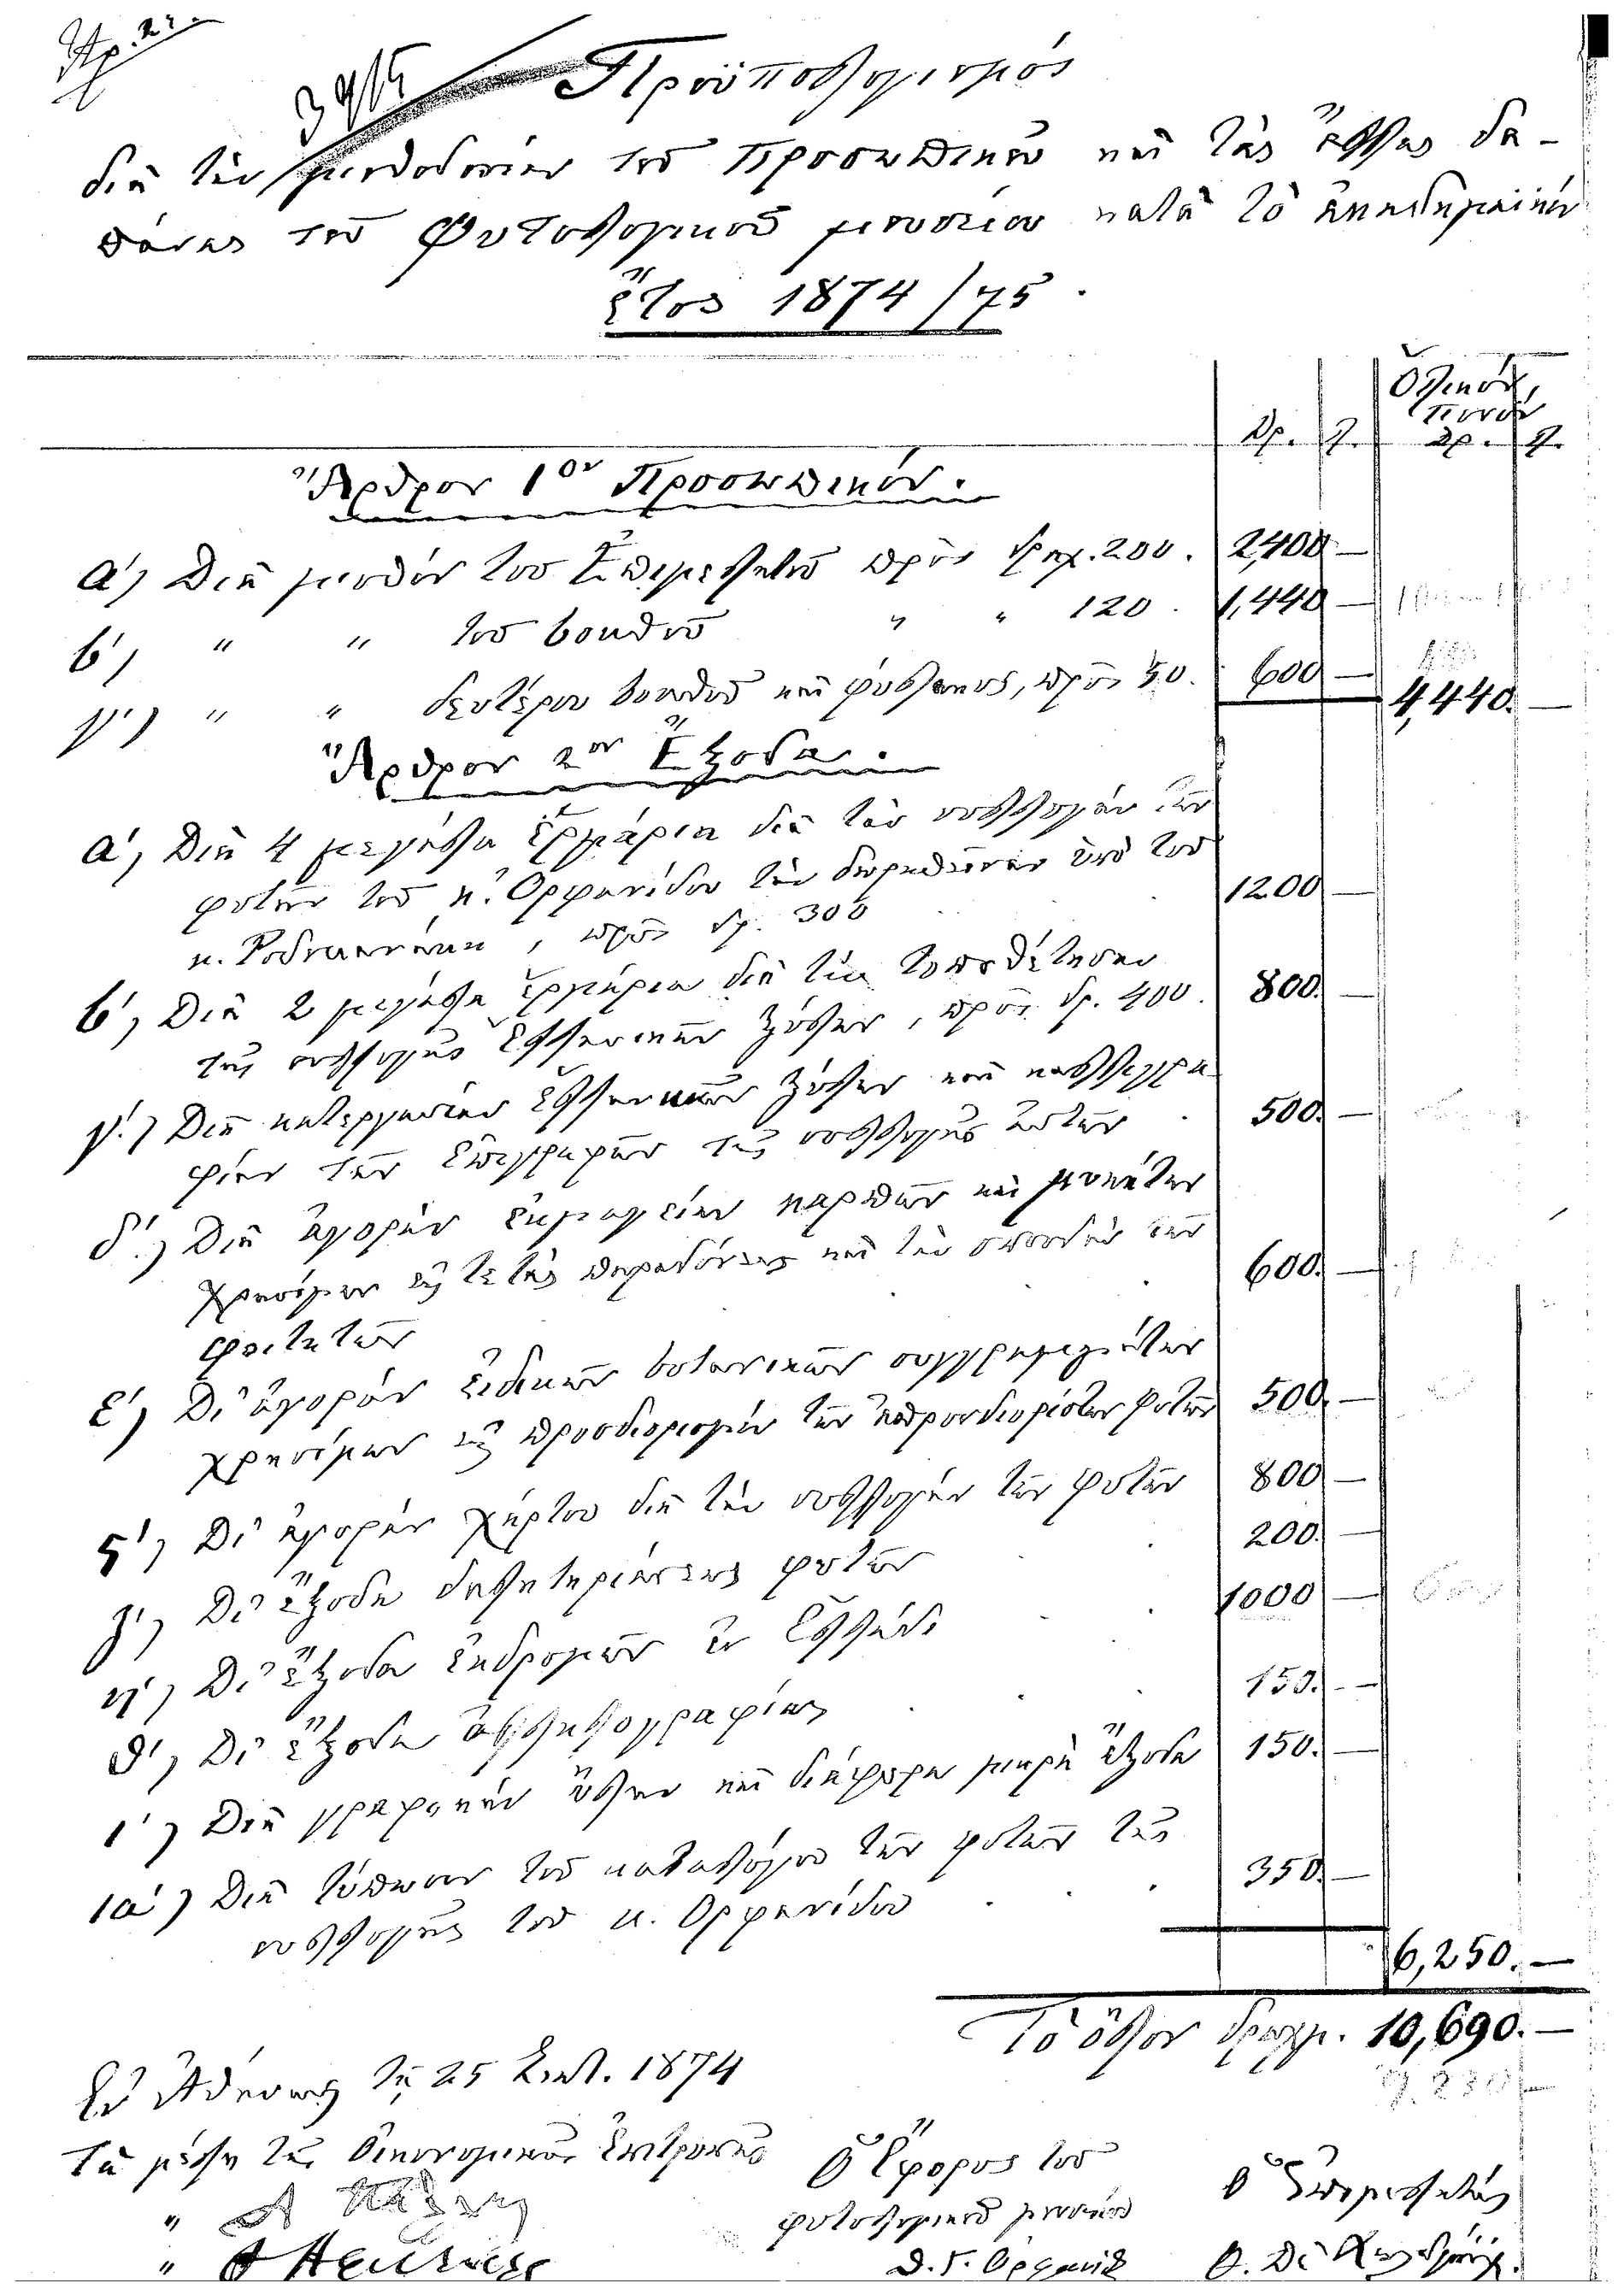 Ἀρ. 21.
Προϋπολογισμὸς
διὰ τὴν μισθοδοσίαν τοῦ προσωπικοῦ καὶ τὰς ἄλλας δα-
πάνας τοῦ Φυτολογικοῦ μουσείου κατὰ τὸ ἀκαδημαϊκὸν
ἔτος 1874/75.
Ὁλικὸν
ποσὸν
Δρ. λ. Δρ. λ.
Ἄρθρον 1ον Προσωπικόν.
α΄) Διὰ μισθὸν τοῦ Ἐπιμελητοῦ πρὸς δραχ. 200. 2,400 —
β΄) " " τοῦ βοηθοῦ " " 120. 1,440 —
γ΄) " " δευτέρου βοηθοῦ καὶ φύλακος, πρὸς 50. 600 —
4,440. —
Ἄρθρον 2ον Ἔξοδα.
α΄) Διὰ 4 μεγάλα ἑρμάρια διὰ τὴν συλλογὴν τῶν
φυτῶν τοῦ κ. Ὀρφανίδου τὴν δωρηθεῖσαν ὑπὸ τοῦ
κ. Ῥοδοκανάκη, πρὸς δρ. 300 1200 —
β΄) Διὰ 2 μεγάλα ἑρμάρια διὰ τὴν τοποθέτησιν
τῆς συλλογῆς Ἑλληνικῶν ξύλων, πρὸς δρ. 400. 800. —
γ΄) Διὰ κατεργασίαν Ἑλληνικῶν ξύλων καὶ καλλιγρα-
φίαν τῶν ἐπιγραφῶν τῆς συλλογῆς αὐτῶν 500. —
δ΄) Διὰ ἀγορὰν ἐκμαγείων καρπῶν καὶ μυκήτων
χρησίμων εἰς τε τὰς παραδόσεις καὶ τὴν σπουδὴν τῶν
φοιτητῶν 600. —
ε΄) Δι' ἀγορὰν εἰδικῶν βοτανικῶν συγγραμμάτων
χρησίμων εἰς προσδιορισμὸν τῶν ἀπροσδιορίστων φυτῶν 500. —
ς΄) Δι' ἀγορὰν χάρτου διὰ τὴν συλλογὴν τῶν φυτῶν 800 —
ζ΄) Δι' ἔξοδα δηλητηριάσεως φυτῶν 200. —
η΄) Δι' ἔξοδα ἐκδρομῶν ἐν Ἑλλάδι 1000 —
θ΄) Δι' ἔξοδα ἀλληλογραφίας 150. —
ι΄) Διὰ γραφικὴν ὕλην καὶ διάφορα μικρὰ ἔξοδα 150. —
ια΄) Διὰ τύπωσιν τοῦ καταλόγου τῶν φυτῶν τῆς
συλλογῆς τοῦ κ. Ὀρφανίδου 350. —
6,250. —
Τὸ ὅλον δραχμ. 10,690. —
Ἐν Ἀθήναις τῇ 25 Σεπτ. 1874
Τὰ μέλη τῆς Οἰκονομικῆς Ἐπιτροπῆς
Ὁ Ἔφορος τοῦ
φυτολογικοῦ μουσείου
Θ. Γ. Ὀρφανίδης
Ὁ Ἐπιμελητὴς